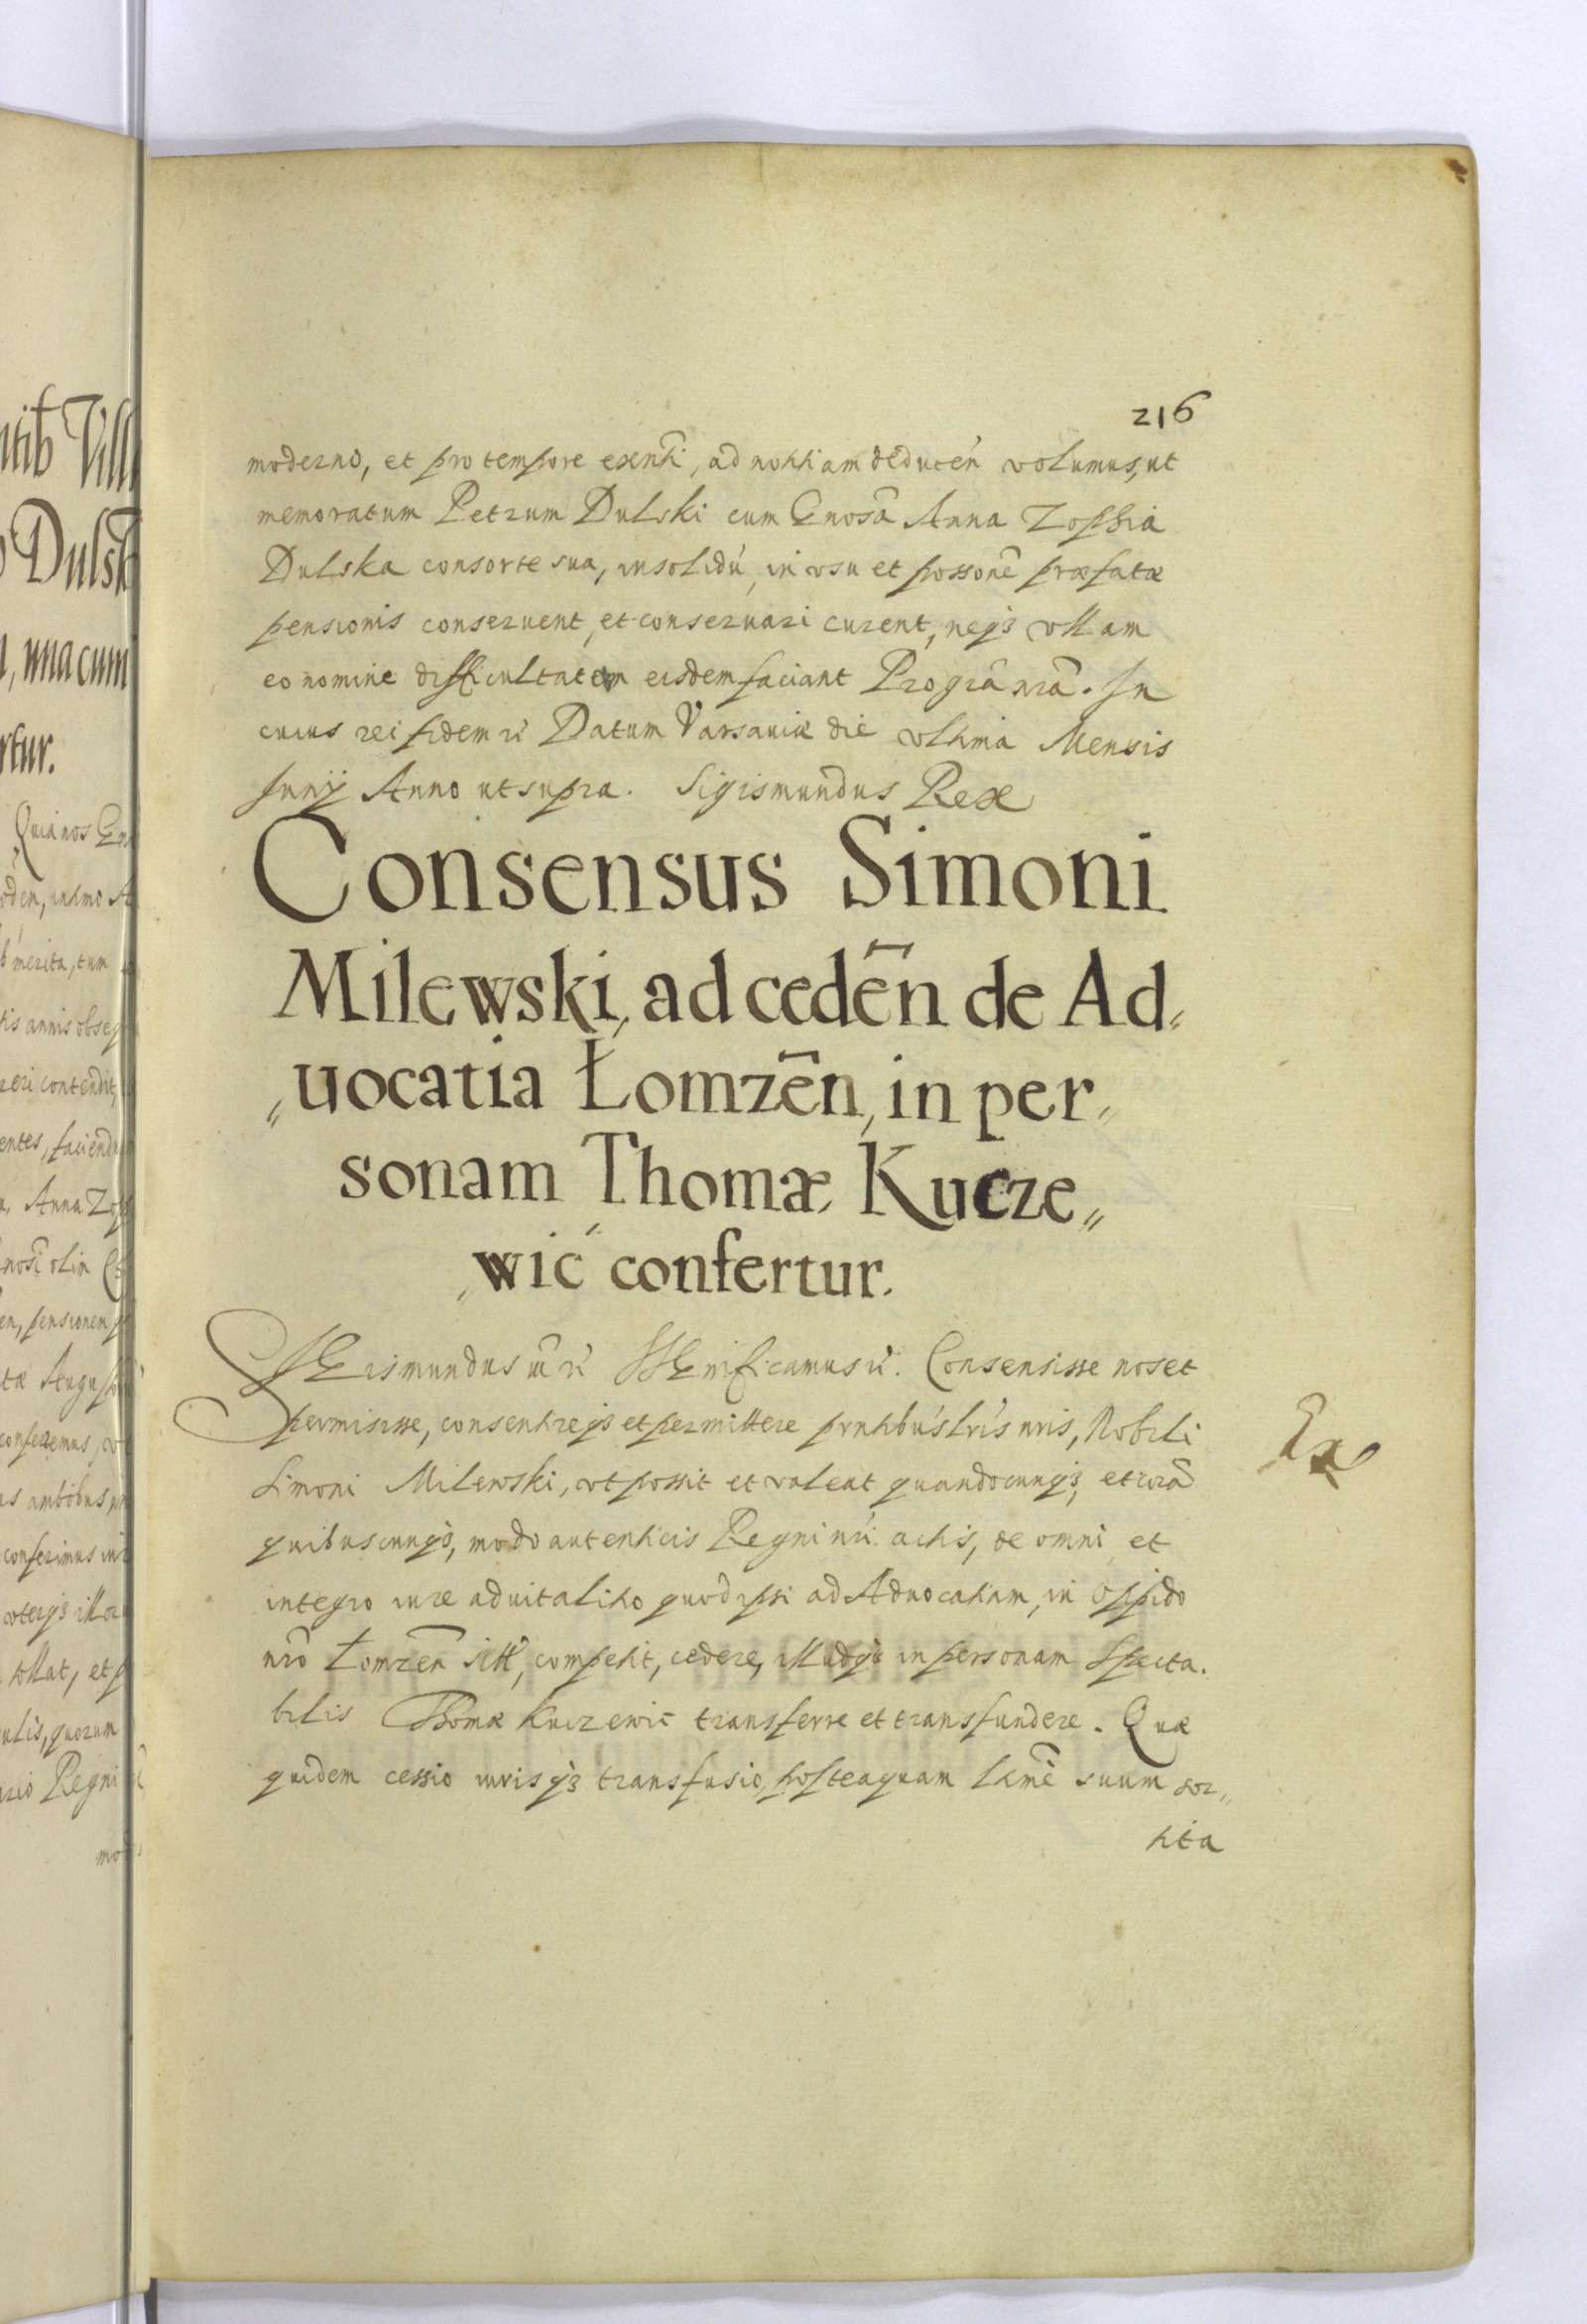 216
moderno, et pro tempore exeñti, ad notitiam deduceń volumus, ut
memoratum Petrum Dulski cum Gnosã Anna Zophia
Dulska consorte sua, insolidú, in vsu et possonẽ præfatæ
pensionis conseruent, et conseruari curent, neqȝ vllam
eo nomine difficultatem eisdem faciant Pro grã nrã. In
cuius rei fidem rc̃ Datum Varsauiæ die vltima Mensis
Junij Anno ut supra. Sigismundus Rex
Consensus Simoni
Milewski, ad cedẽn de Ad„
„uocatia Łomzẽn, in per„
sonam Thomæ Kucze„
„wić confertur.
SIGismundus rc̃ SIGnificamus rc̃. Consensisse nos et
permisisse, consentireqȝ et permittere prntibús lris nris, Nobili
Simoni Milewski, vt possit et valeat quandocunqȝ, et corã
quibuscunqȝ, modo autenticis Regni nri actis, de omni et
integro iure aduitalitio quod ipsi ad Aduocatiam, in oppido
nrõ Łomzẽn sitt, competit, cedere, illudqȝ in personam Specta.
bilis Thomæ Kuczewic transferre et transfundere. Quæ
quidem cessio iurisqȝ transfusio, posteaquam ltimẽ suum sor„
tita
Ex